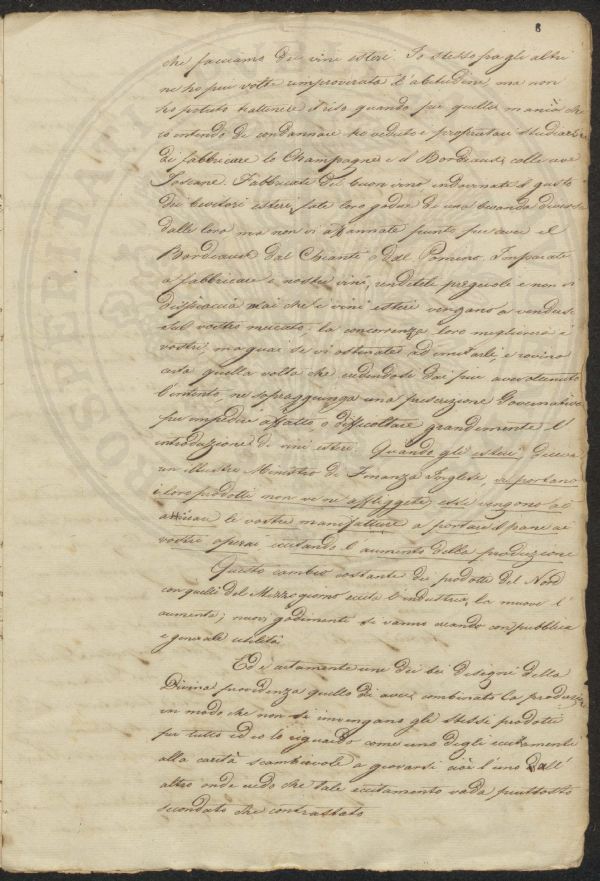 8
che facciamo dei vini esteri. Io stesso fra gli altri
ne ho più volte improverata l'abitudine ma non
ho potuto trattenere il riso quando per quella mania che
io intendo di condannare ho veduto i proprietari studiarsi
di fabbricare lo Champagne e il Bordeaux colle uve
Toscane. Fabbricate del buon vino indovinate il gusto
dei bevitori esteri, fate loro godere di una bevanda diversa
dalle loro ma non vi affannate punto per aver il
Bordeaux dal Chianti o dal Pomino. Imparate
a fabbricare i nostri vini, rendeteli pregevoli e non vi
dispiaccia mai che i vini esteri vengano a vendersi
sul vostro mercato, la concorrenza loro migliorerà i
vostri, ma guai se vi ostinate ad imitarli, e rovina
certa quella volta che credendosi dai più aver ottenuto
l'intento, ne sopraggiunga una prescrizione Governativa
per impedire affatto, o difficoltare grandemente l'
introduzione di vini esteri. Quando gli esteri, diceva
un illustre Ministro di Finanza Inglese, vi portano
i loro prodotti non ve ne affliggete, essi vengono ad
attivare le vostre manifatture a portare il pane ai
vostri operai eccitando l'aumento della produzione
Questo cambio costante dei prodotti del Nord
con quelli del Mezzogiorno eccita l'industria, la muove l'
aumenta; nuovi godimenti si vanno creando con pubblica
e generale utilità
Ed è certamente uno dei bei disegni della
Divina providenza quello di aver combinato la produzione
in modo che non si rinvengano gli stessi prodotti
per tutto ed io lo riguardo come uno degli eccitamenti
alla carità scambievole a giovarsi cioè l'uno dall'
altro onde credo che tale eccitamento vada piuttosto
secondato che contrastato